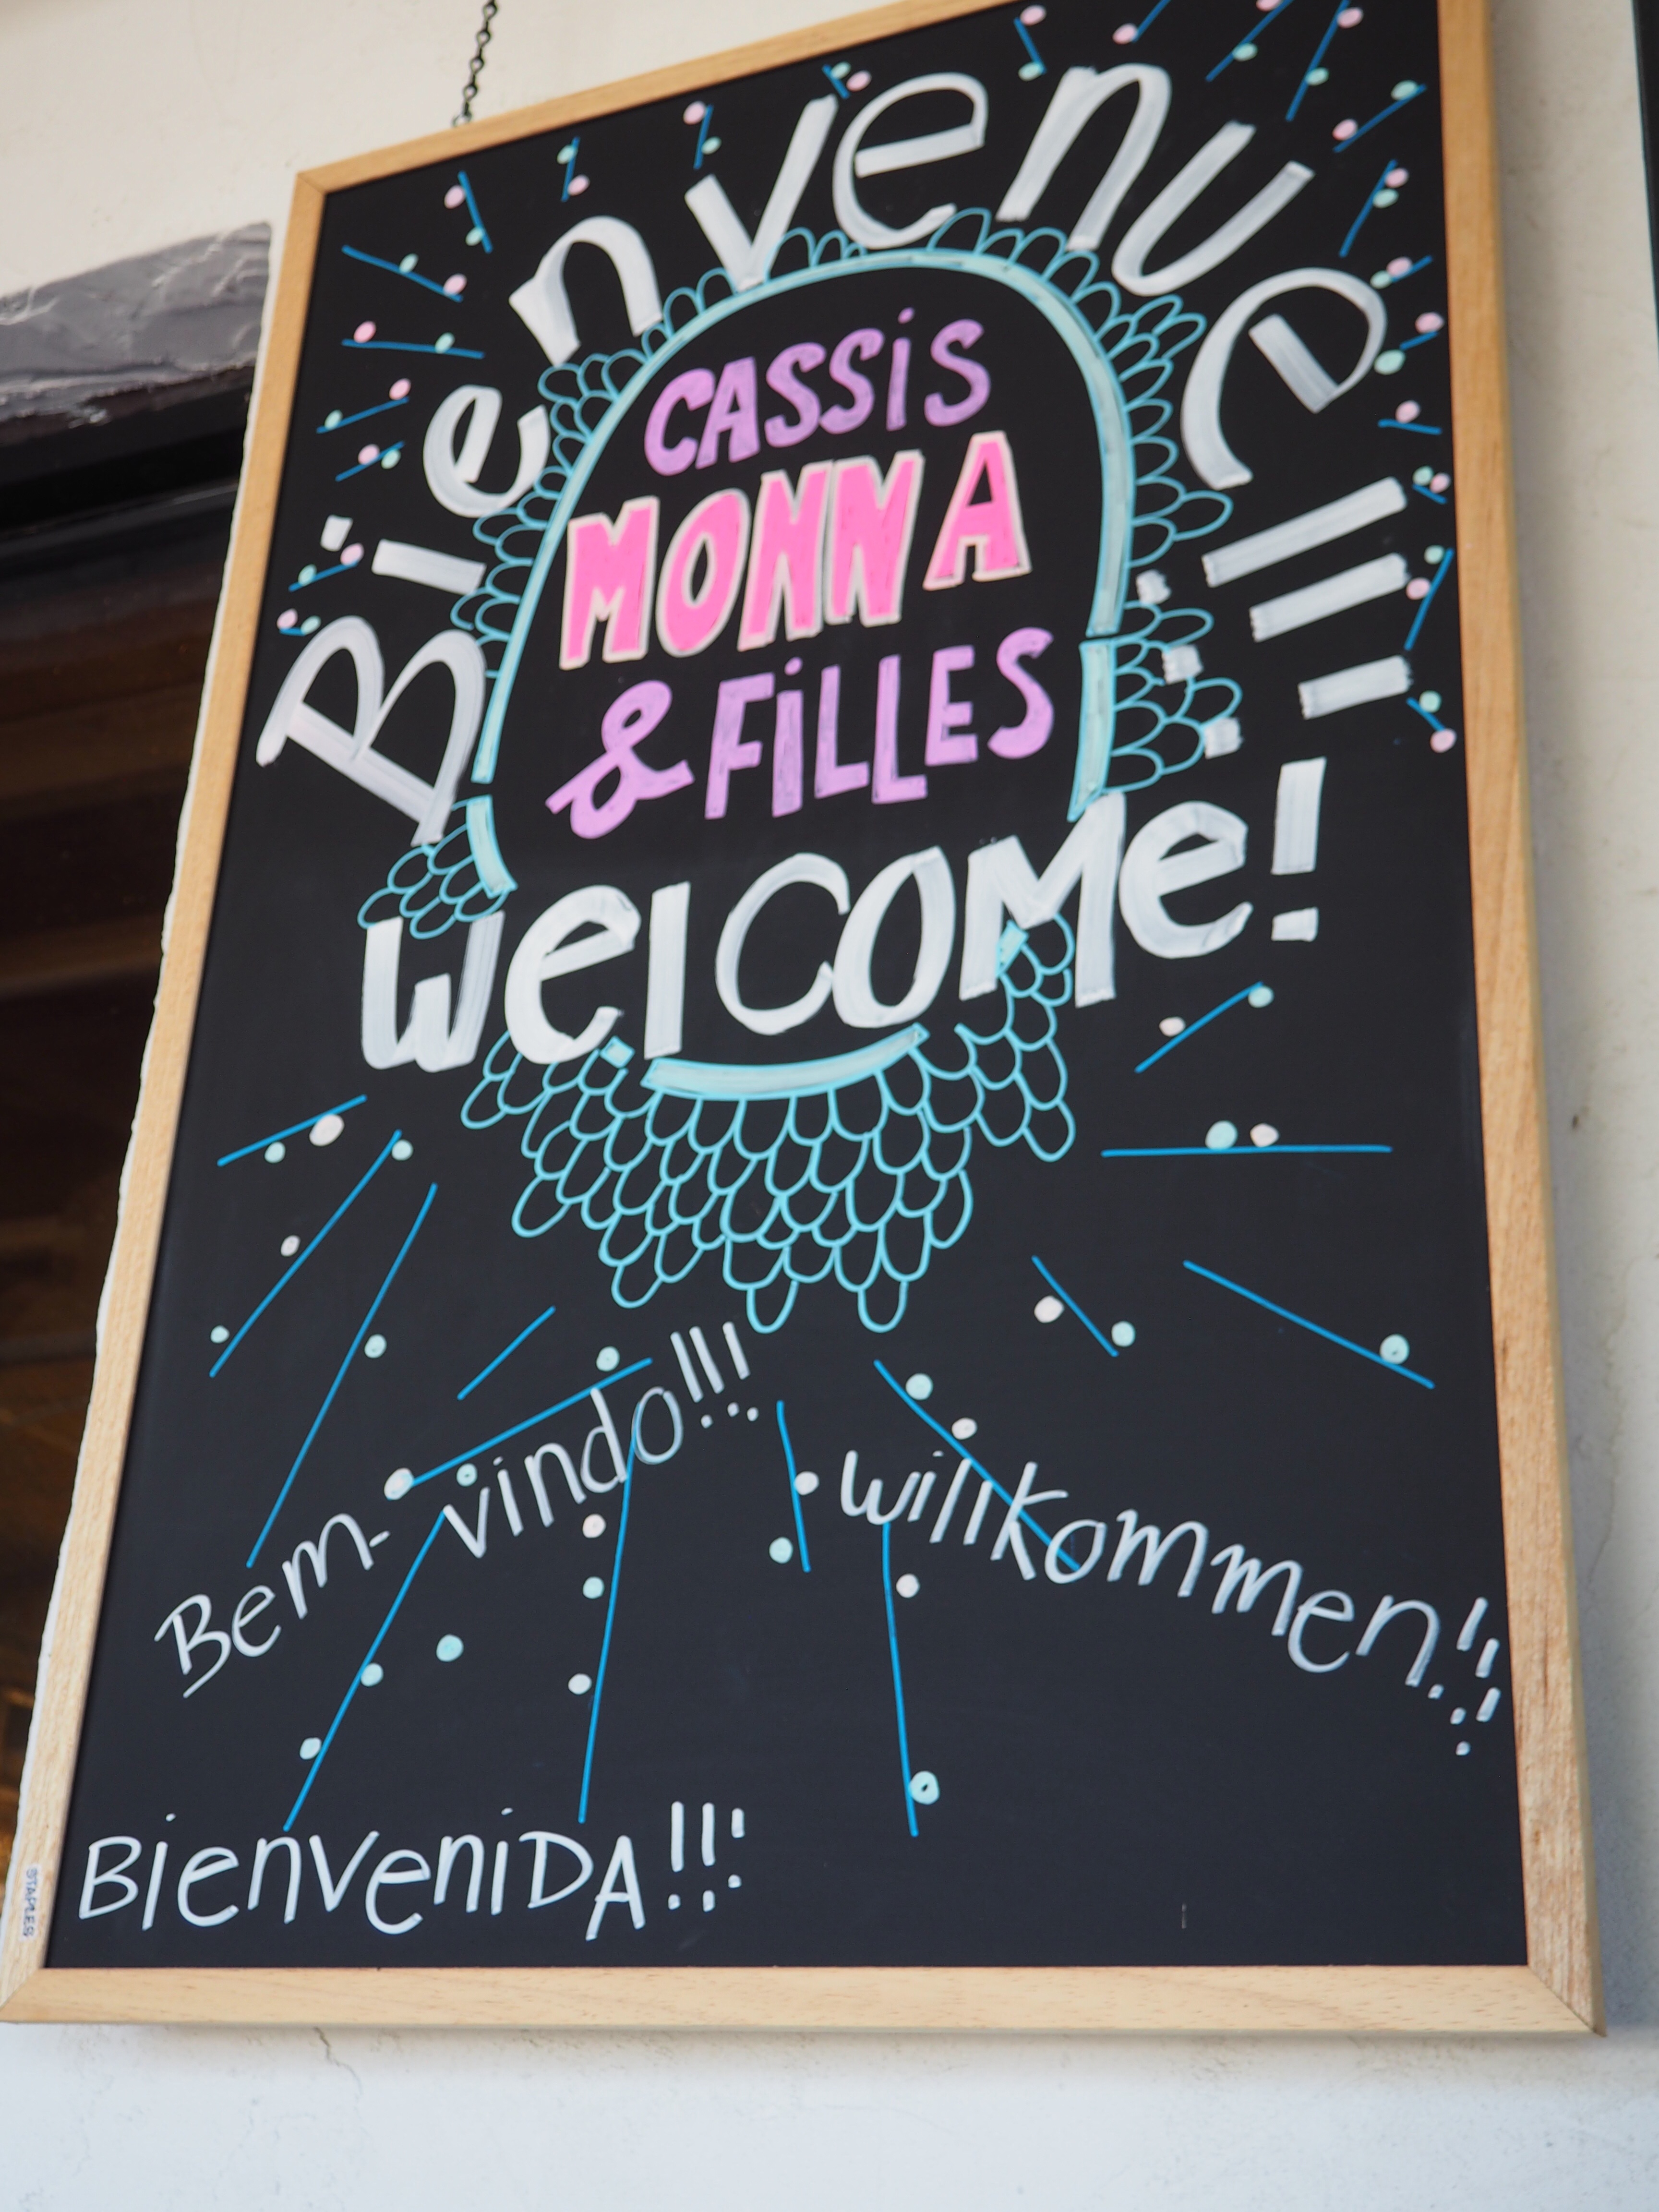 Bienvenue!!!
CASSiS
MONNA
& FiLLES
WelCOMe!
Bem-vindo!!!
willkommen!!!
BienveniDA!!!
STAPLES